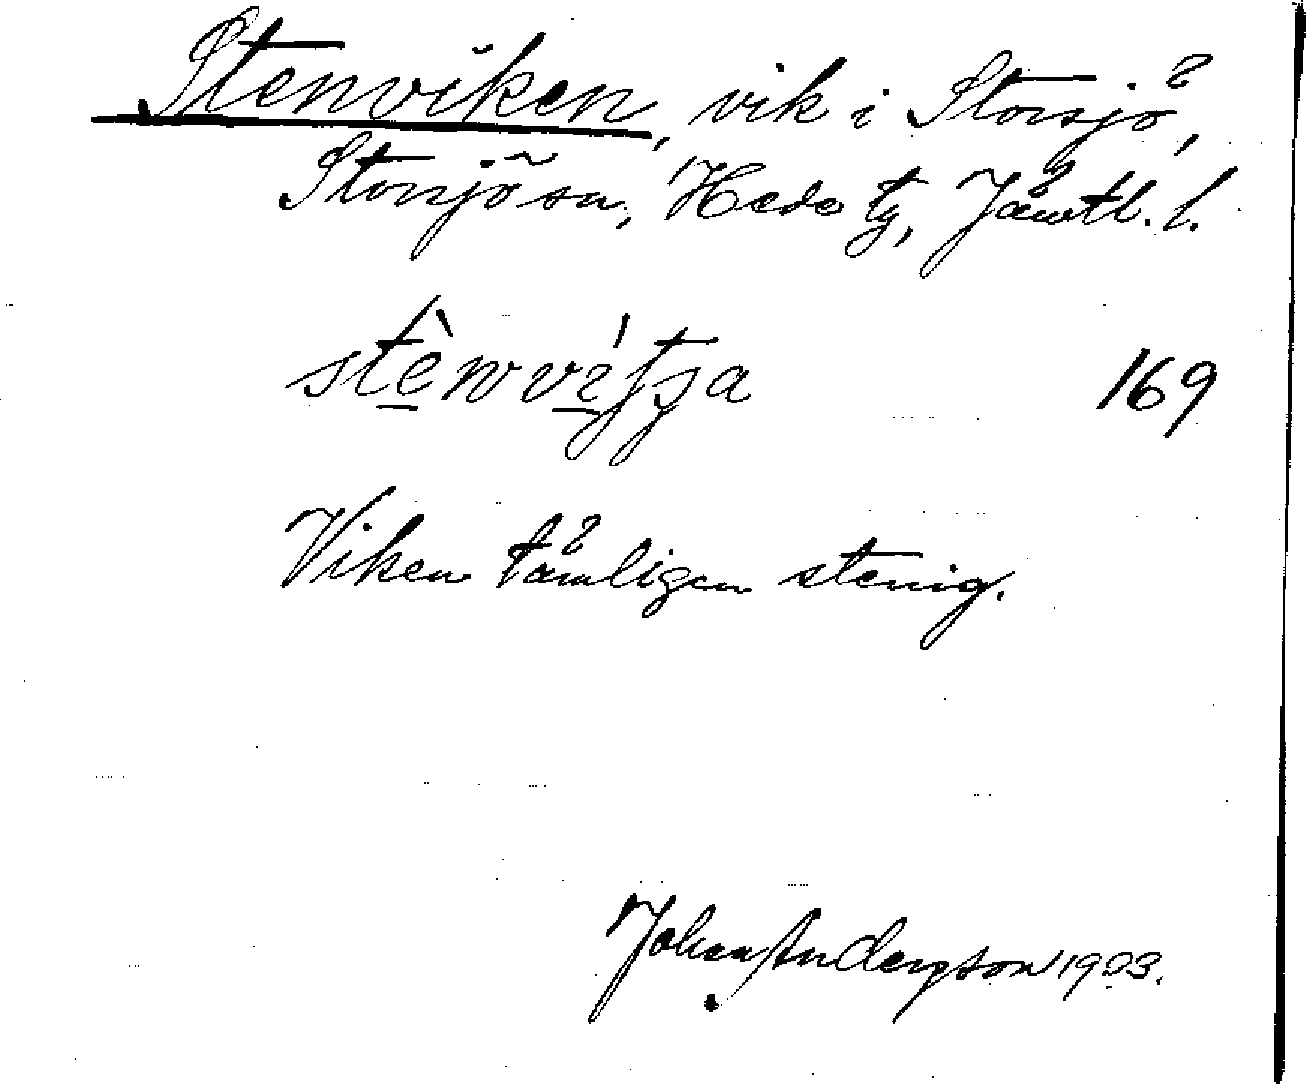 Stenviken, vik i Storsjö,
Storsjö sn, Hede tg, Jämtl. l.
stè̱nvi̱ʹtja
169
Viken tämligen stenig.
Johan Anderson 1903.